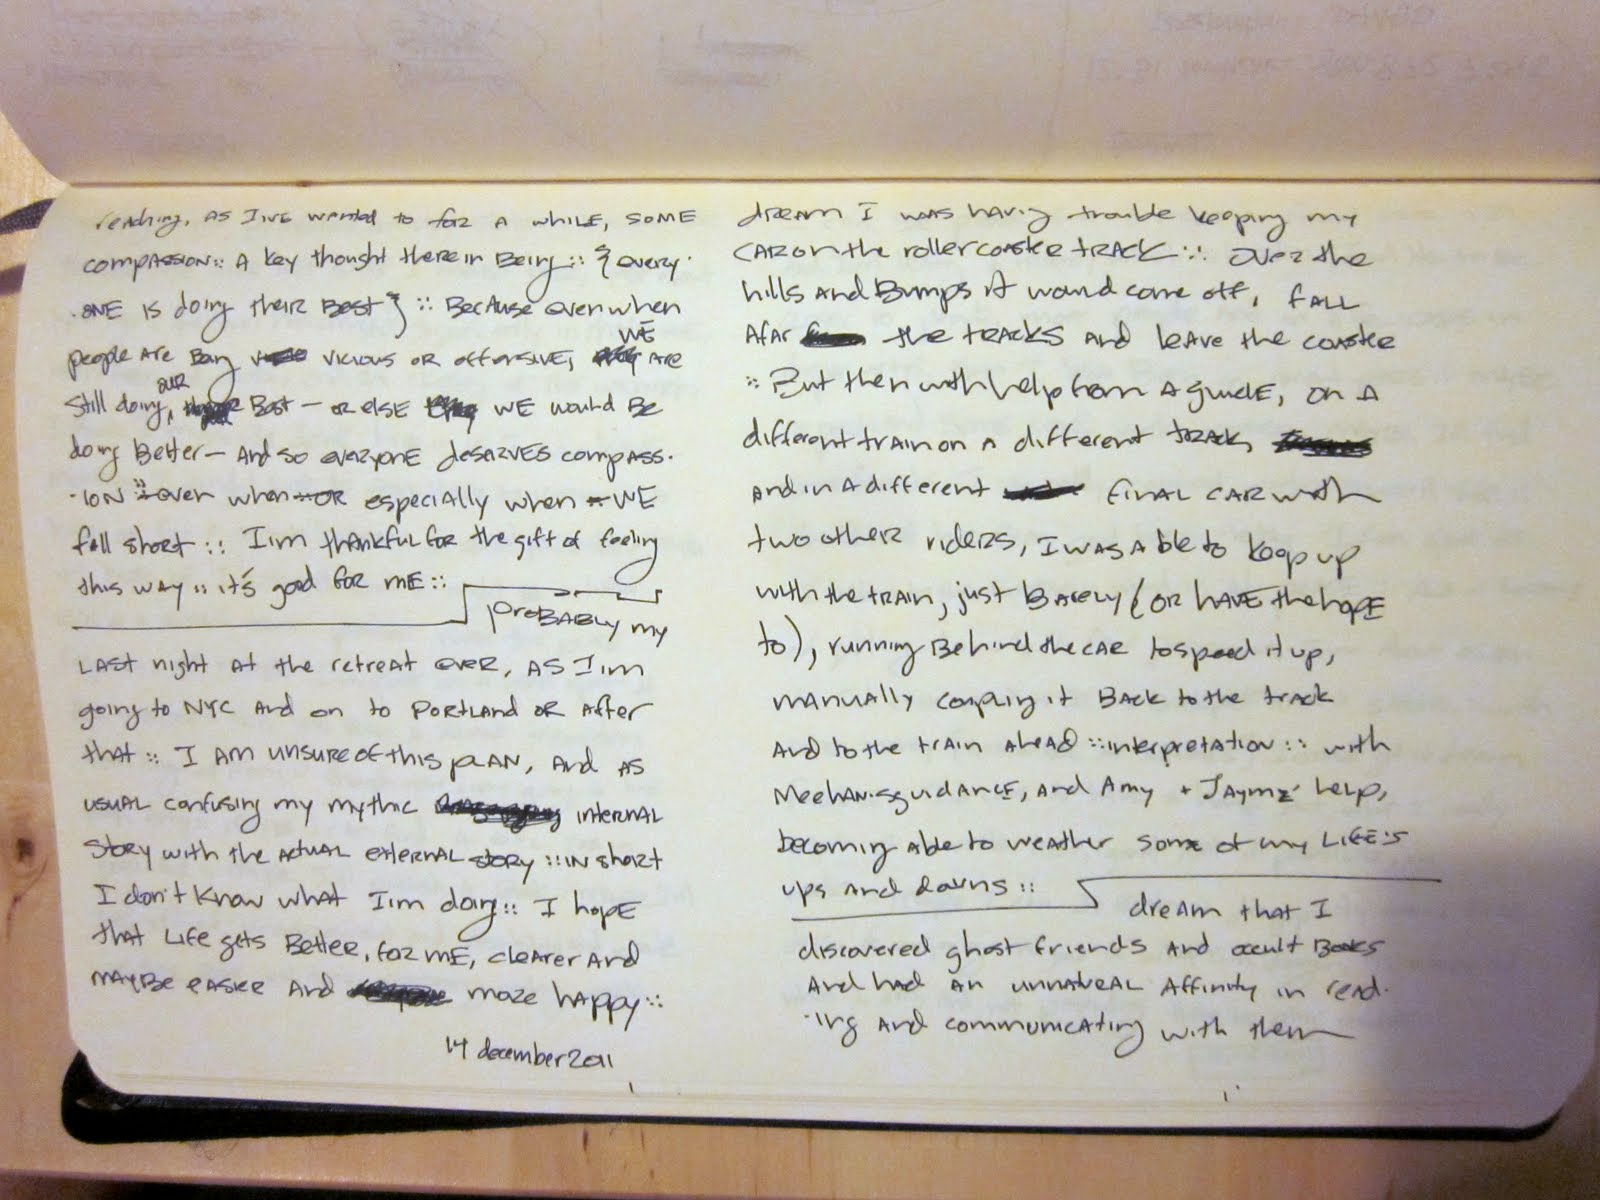 reaching, as I've wanted to for a while, some
compassion :: A key thought there in Being :: {every-
-one is doing their Best} :: Because even when
people are Being vicious or offensive, WE are
still doing our Best — or else WE would Be
doing Better — And so everyone deserves compass-
-ion :: even when especially when WE
fall short :: I'm thankful for the gift of feeling
this way :: it's good for me ::
probably my
last night at the retreat ever, as I'm
going to NYC and on to Portland or after
that :: I am unsure of this plan, and as
usual confusing my mythic internal
story with the actual external story :: in short
I don't know what I'm doing :: I hope
that life gets Better, for me, clearer and
maybe easier and more happy ::
14 december 2011
dream I was having trouble keeping my
car on the roller coaster track :: over the
hills and Bumps it would come off, fall
afar the tracks and leave the coaster
:: But then with help from a guide, on a
different train on a different track,
and in a different final car with
two other riders, I was able to keep up
with the train, just Barely (or have the hope
to), running Behind the car to speed it up,
manually coupling it Back to the track
and to the train ahead :: interpretation :: with
Meehan's guidance, and Amy + Jayme' help,
becoming able to weather some of my life's
ups and downs ::
dream that I
discovered ghost friends and occult Books
and had an unnatural affinity in read-
-ing and communicating with them